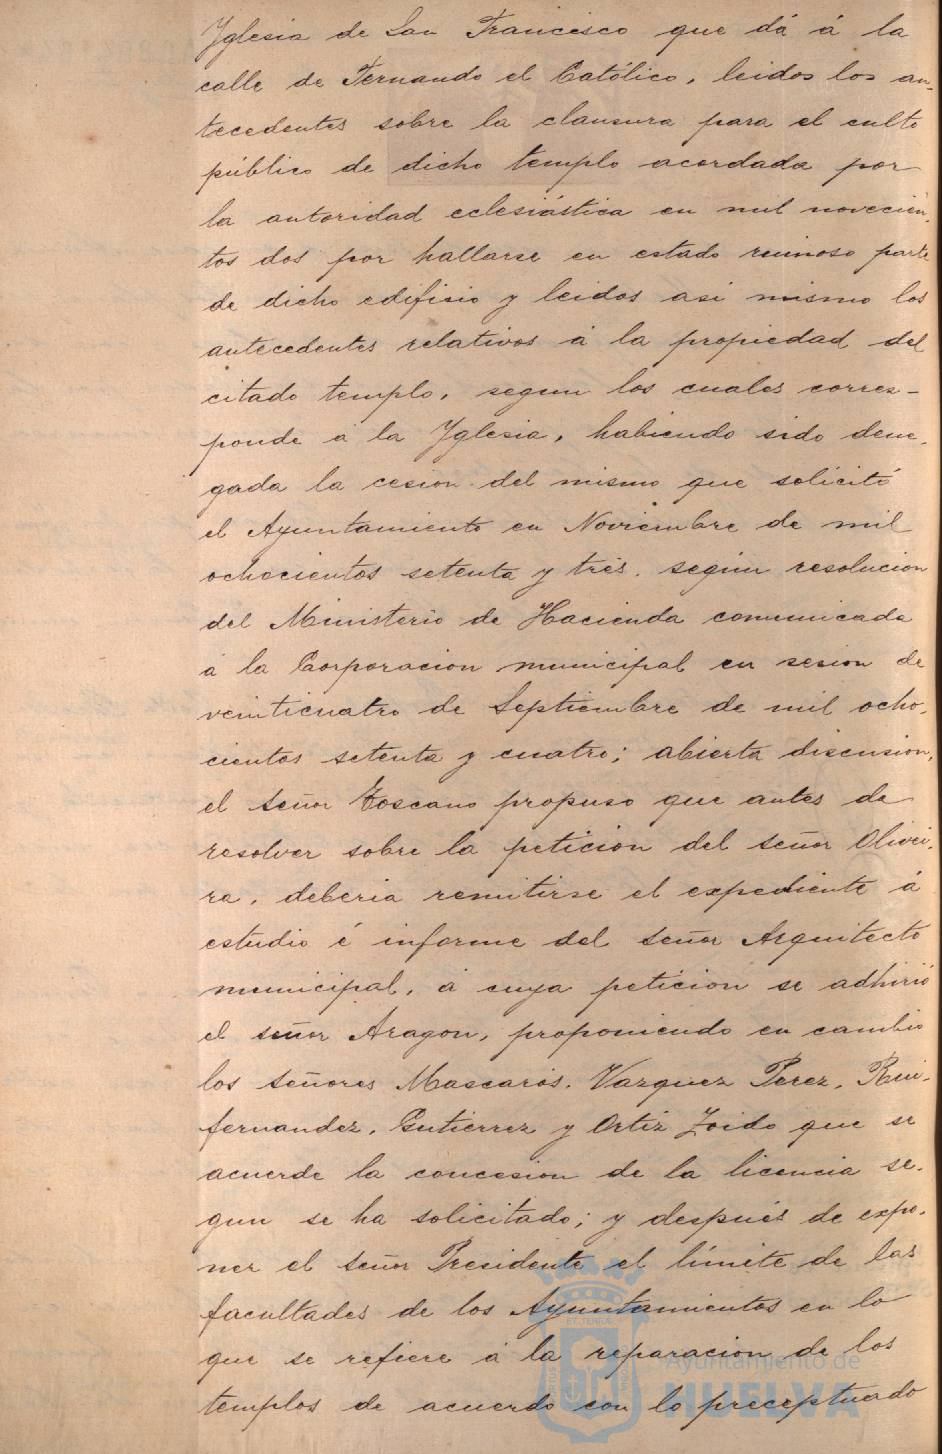 Yglesia de San Francisco que dá á la
calle de Fernando el Católico, leidos los an-
tecedentes sobre la clausura para el culto
público de dicho templo acordada por
la autoridad eclesiástica en mil novecien-
tos dos por hallarse en estado ruinoso parte
de dicho edifisio y leidos asi mismo los
antecedentes relativos á la propiedad del
citado templo, segun los cuales corres-
ponde á la Yglesia, habiendo sido dene-
gada la cesion del mismo que solicitó
el Ayuntamiento en Noviembre de mil
ochocientos setenta y tres, según resolucion
del Ministerio de Hacienda comunicada
á la Corporacion municipal en sesion de
veinticuatro de Septiembre de mil ocho-
cientos setenta y cuatro; abierta discusion,
el señor Toscano propuso que antes de
resolver sobre la peticion del señor Olivei-
ra, deberia remitirse el expediente á
estudio é informe del señor Arquitecto
municipal, á cuya peticion se adhirió
el señor Aragon, proponiendo en cambio
los señores Mascarós, Vazquez Perez, Rui-
fernandez, Gutierrez y Ortiz Zoido que se
acuerde la concesion de la licencia se-
gun se ha solicitado; y después de expo-
ner el señor Presidente el límite de las
facultades de los Ayuntamientos en lo
que se refiere á la reparacion de los
templos de acuerdo con lo preceptuado
Ayuntamiento de
HUELVA